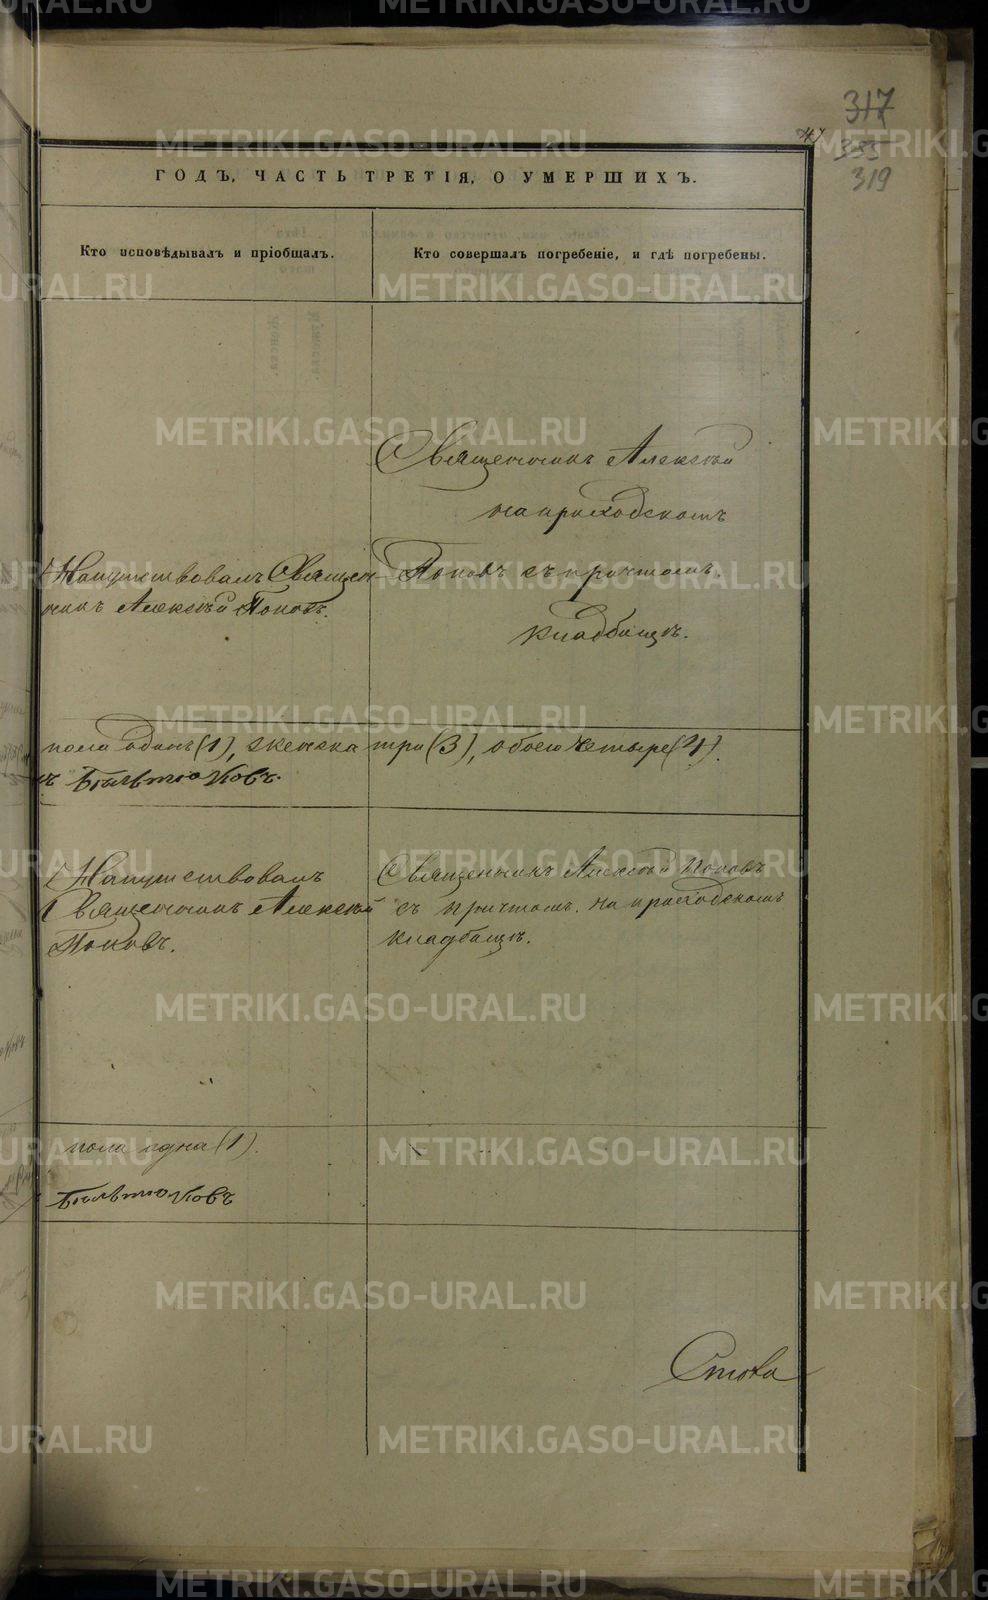 317
47
335
319
ГОДЪ, ЧАСТЬ ТРЕТІЯ, О УМЕРШИХЪ.
Кто исповѣдывалъ и пріобщалъ.
Кто совершалъ погребеніе, и гдѣ погребены.
Священникъ Алексѣй
на приходскомъ
Напутствовалъ Священ-
никъ Алексѣй Поповъ.
Поповъ съ причтомъ.
кладбищѣ.
пола одинъ (1), женска три (3), обоего четыре (4).
къ Бѣльтюковъ.
Напутствовалъ
Священникъ Алексѣй
Поповъ.
Священникъ Алексѣй Поповъ
съ причтомъ. На приходскомъ
кладбищѣ.
пола одна (1).
Бѣльтюковъ
METRIKI.GASO-URAL.RU